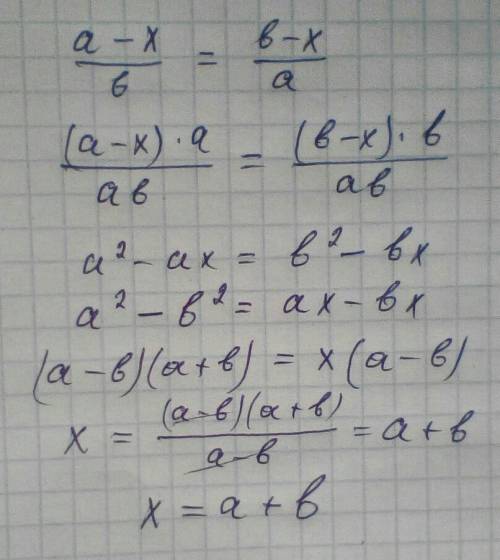 (a − x)/в = (в − x)/a
((a − x) · a)/(aв) = ((в − x) · в)/(aв)
a² − ax = в² − вx
a² − в² = ax − вx
(a − в)(a + в) = x(a − в)
x = ((a − в)(a + в))/(a − в) = a + в
x = a + в